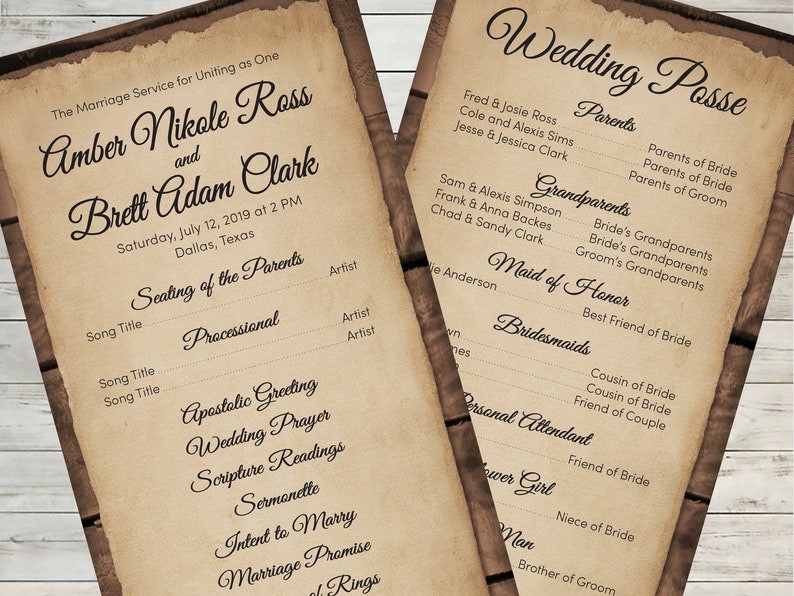 The Marriage Service for Uniting as One
Amber Nikole Ross
and
Brett Adam Clark
Saturday, July 12, 2019 at 2 PM
Dallas, Texas
Seating of the Parents
Song Title Artist
Processional
Song Title Artist
Song Title Artist
Apostolic Greeting
Wedding Prayer
Scripture Readings
Sermonette
Intent to Marry
Marriage Promise
of Rings
Wedding Posse
Parents
Fred & Josie Ross Parents of Bride
Cole and Alexis Sims Parents of Bride
Jesse & Jessica Clark Parents of Groom
Grandparents
Sam & Alexis Simpson Bride's Grandparents
Frank & Anna Backes Bride's Grandparents
Chad & Sandy Clark Groom's Grandparents
Maid of Honor
lie Anderson Best Friend of Bride
Bridesmaids
wn Cousin of Bride
mes Cousin of Bride
Friend of Couple
Personal Attendant
Friend of Bride
ower Girl
Niece of Bride
Man
Brother of Groom